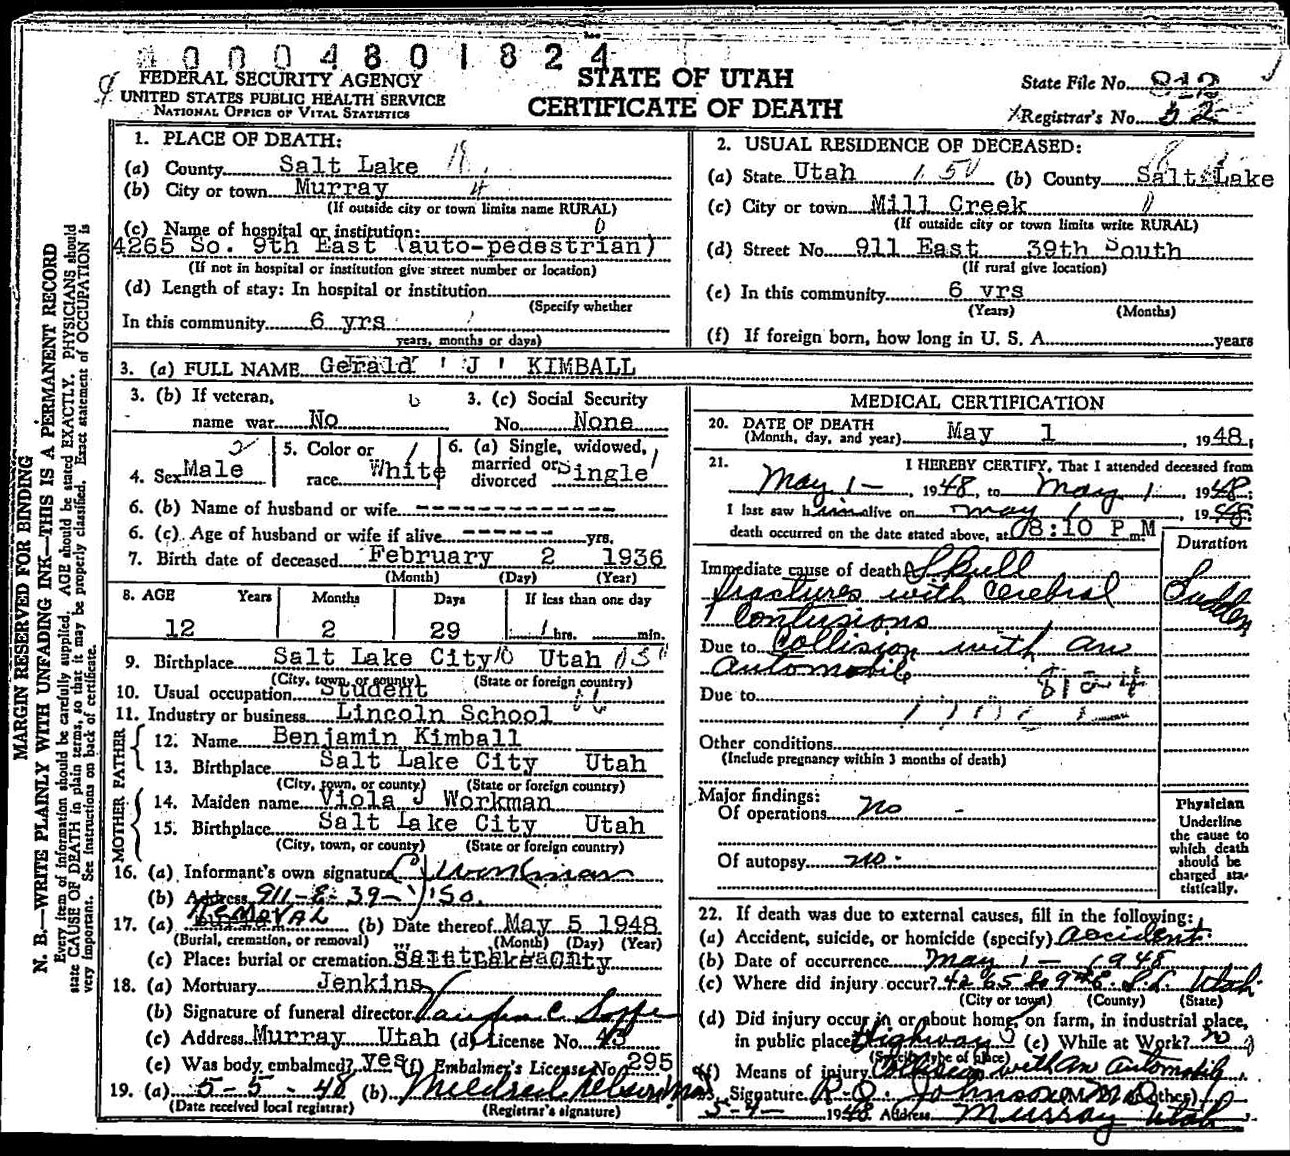 0004801824
FEDERAL SECURITY AGENCY
UNITED STATES PUBLIC HEALTH SERVICE
NATIONAL OFFICE OF VITAL STATISTICS
STATE OF UTAH
CERTIFICATE OF DEATH
State File No. 812
Registrar's No. 52
MARGIN RESERVED FOR BINDING
N. B.—WRITE PLAINLY WITH UNFADING INK—THIS IS A PERMANENT RECORD
Every item of information should be carefully supplied. AGE should be stated EXACTLY. PHYSICIANS should
state CAUSE OF DEATH in plain terms, so that it may be properly classified. Exact statement of OCCUPATION is
very important. See instructions on back of certificate.
1. PLACE OF DEATH:
(a) County Salt Lake
(b) City or town Murray
(If outside city or town limits name RURAL)
(c) Name of hospital or institution:
4265 So. 9th East (auto-pedestrian)
(If not in hospital or institution give street number or location)
(d) Length of stay: In hospital or institution
(Specify whether
In this community 6 yrs
years, months or days)
2. USUAL RESIDENCE OF DECEASED:
(a) State Utah (b) County Salt Lake
(c) City or town Mill Creek
(If outside city or town limits write RURAL)
(d) Street No. 911 East 39th South
(If rural give location)
(e) In this community 6 yrs
(Years) (Months)
(f) If foreign born, how long in U. S. A. years
3. (a) FULL NAME Gerald 'J' KIMBALL
3. (b) If veteran,
name war No
3. (c) Social Security
No. None
4. Sex Male
5. Color or
race White
6. (a) Single, widowed,
married or
divorced Single
6. (b) Name of husband or wife
6. (c) Age of husband or wife if alive yrs.
7. Birth date of deceased February 2 1936
(Month) (Day) (Year)
8. AGE Years Months Days If less than one day
12 2 29 hrs. min.
9. Birthplace Salt Lake City Utah
(City, town, or county) (State or foreign country)
10. Usual occupation Student
11. Industry or business Lincoln School
FATHER
12. Name Benjamin Kimball
13. Birthplace Salt Lake City Utah
(City, town, or county) (State or foreign country)
MOTHER
14. Maiden name Viola J Workman
15. Birthplace Salt Lake City Utah
(City, town, or county) (State or foreign country)
16. (a) Informant's own signature Workman
(b) Address 911-E-39- So.
17. (a) REMOVAL (b) Date thereof May 5 1948
(Burial, cremation, or removal) (Month) (Day) (Year)
(c) Place: burial or cremation Salt Lake City
18. (a) Mortuary Jenkins
(b) Signature of funeral director
(c) Address Murray Utah (d) License No. 43
(e) Was body embalmed? yes (f) Embalmer's License No. 295
19. (a) 5-5-48 (b) Mildred
(Date received local registrar) (Registrar's signature)
MEDICAL CERTIFICATION
20. DATE OF DEATH
(Month, day, and year) May 1, 1948;
21. I HEREBY CERTIFY, That I attended deceased from
May 1-, 1948, to May 1 1948;
I last saw him alive on May 1, 1948;
death occurred on the date stated above, at 08:10 P m M
Duration
Immediate cause of death Skull
fractures with cerebral
contusions
Sudden
Due to Collision with an
automobile
Due to
Other conditions
(Include pregnancy within 3 months of death)
Major findings:
Of operations no -
Of autopsy no.
Physician
Underline
the cause to
which death
should be
charged sta-
tistically.
22. If death was due to external causes, fill in the following:
(a) Accident, suicide, or homicide (specify) accident
(b) Date of occurrence May 1- 1948
(c) Where did injury occur? 4265 So 9th E. S.L. Utah
(City or town) (County) (State)
(d) Did injury occur in or about home, on farm, in industrial place,
in public place Highway (e) While at Work? no
(Specify type of place)
(f) Means of injury Collision with an automobile
Signature R.O. Johnson M.D. (M.D. or other)
5-4- 1948 Address Murray Utah